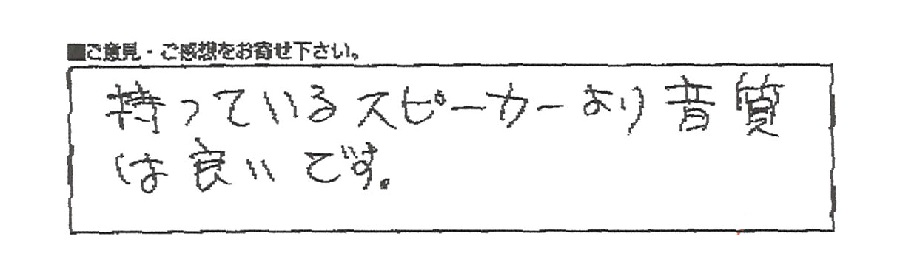 ■ご意見・ご感想をお寄せ下さい。
持っているスピーカーより音質
は良いです。